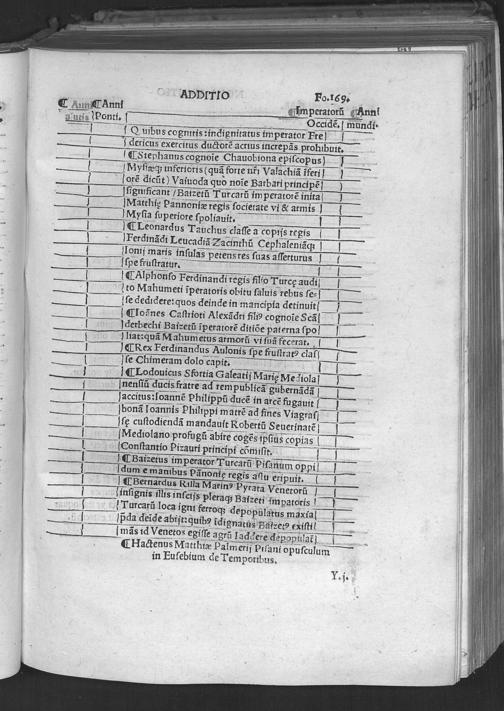 ADDITIO Fo.169.
¶ Anni ¶Anni ¶Imperatorū ¶Anni
Ponti. Occidē. mundi.
Quibus cognitis:indignitatus imperator Fre
dericus exercitus ductorē actius increpās prohibuit.
¶Stephanus cognoīe Chauobiona episcopus
Mysiæqȝ inferioris (quā forte nr̄i Valachiā īferi
orē dicūt) Vaiuoda quo noīe Barbari principē
significant/Baizetū Turcarū imperatorē inita
Matthię Pannoniæ regis societate vi & armis
Mysia superiore spoliauit.
¶Leonardus Tauchus classe a copijs regis
Ferdinādi Leucadiā Zacinthū Cephaleniāqȝ
Ionij maris insulas petens res suas asserturus
spe frustratur.
¶Alphonso Ferdinandi regis filio Turcę audi
to Mahumeti īperatoris obitu saluis rebus se-
se dedidere:quos deinde in mancipia detinuit
¶Ioānes Castrioti Alexādri filiꝰ cognoīe Scā
derbechi Baizetū īperatorē ditiōe paterna spo
liat:quā Mahumetus armorū vi suā fecerat.
¶Rex Ferdinandus Aulonis spe frustratꝰ clas
se Chimeram dolo capit.
¶Lodouicus Sfortia Galeatij Marię Mediola
nensiū ducis fratre ad rempublicā gubernādā
accitus:Ioannē Philippū ducē in arcē fugauit
bonā Ioannis Philippi matrē ad fines Viagras
sę custodiendā mandauit Robertū Seuerinatē
Mediolano profugū abire cogēs ipsius copias
Constantio Pizauri principi cōmisit.
¶Baizetus imperator Turcarū Pisanum oppi
dum e manibus Pānonię regis astu eripuit.
¶Bernardus Rilla Marinꝰ Pyrata Venetorū
insignis illis inscijs pleraqȝ Baizeti impatoris
Turcarū loca igni ferroqȝ depopulatus maxīa
pda deīde abijt:quibꝰ īdignatus Baizetꝰ existi
mās id Venetos egisse agrū Iaddere depopulat
¶Hactenus Matthiæ Palmerij Pisani opusculum
in Eusebium de Temporibus.
Y.j.